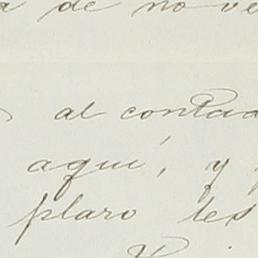 de nove
al contad
aquí, y
plaro les